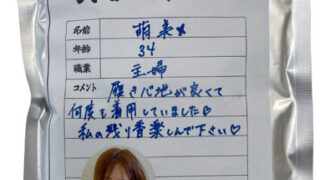 名前 萌
年齢 34
職業 主婦
コメント 履き心地が良くて
何度も着用していました♡
私の残り香楽しんで下さい♡